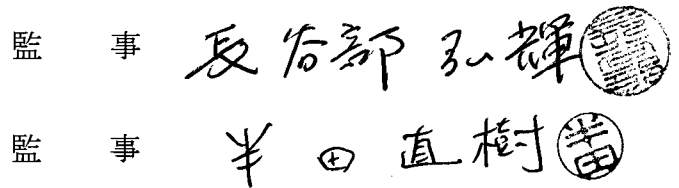 監事 長谷部 弘輝
監事 半田 直樹 半田